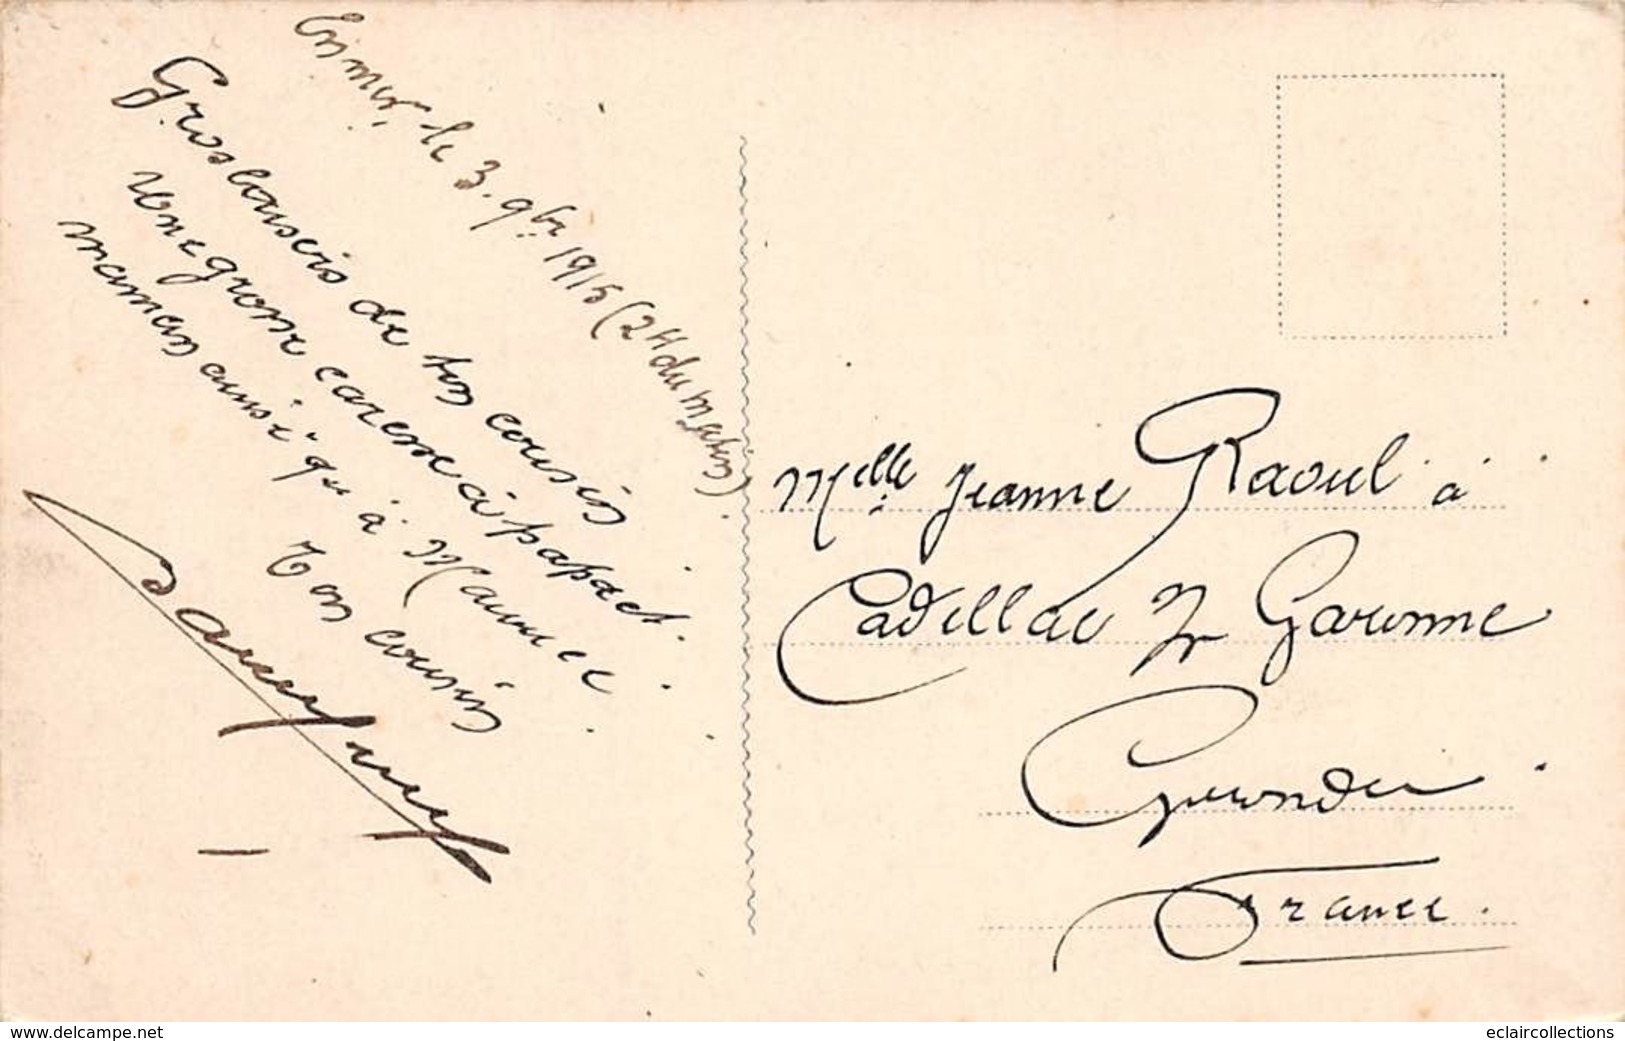 En mer, le 3. 9bre 1915 (2H du matin)
Gros baiseis de ton cousin
une grosse caresse à papa et
maman ainsi qu'à Maurice
Ton cousin
Melle Jeanne Raoul à
Cadillac s/ Garonne
Gironde
France.
www.delcampe.net
eclaircollections